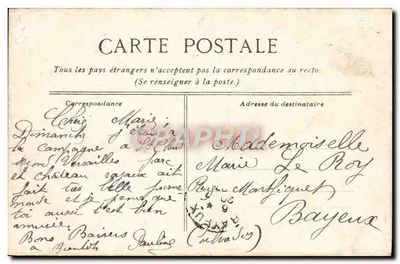 CARTE POSTALE
Tous les pays étrangers n'acceptent pas la correspondance au recto.
(Se renseigner à la poste.)
Correspondance
Chère Marie,
Dimanche j'étais à
la campagne à
Versailles parc
et château
fait très belle
et je pense que
toi aussi t'est bien
amusée.
Bons Baisers
à Bientôt Pauline
Adresse du destinataire
Mademoiselle
Marie Le Roy
Rue
Bayeux
(Calvados)
BAYEUX